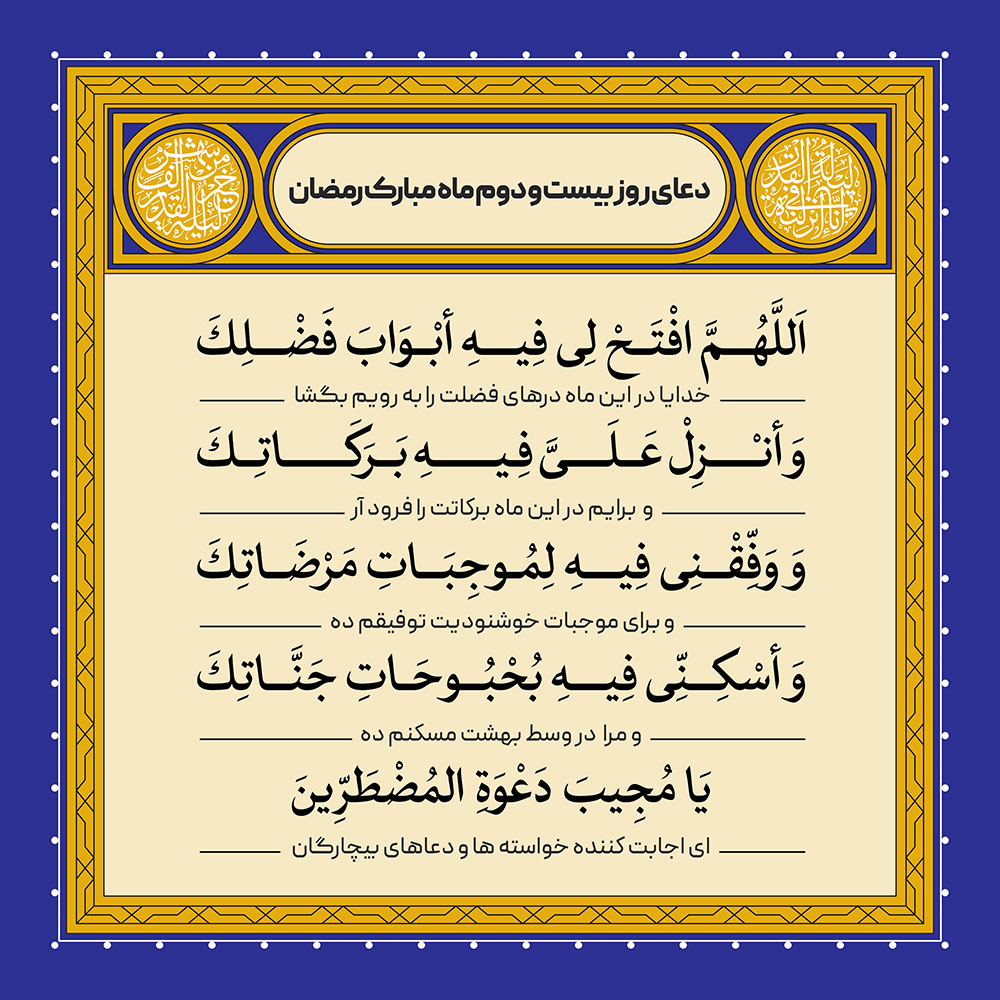 إنا أنزلناه في ليلة القدر
دعای روز بیست و دوم ماه مبارک رمضان
ليلة القدر خير من ألف شهر
اَللَّهُمَّ افْتَحْ لِی فِیهِ أبْوَابَ فَضْلِكَ
خدایا در این ماه درهای فضلت را به رویم بگشا
وَ أنْزِلْ عَلَیَّ فِیهِ بَرَكَاتِكَ
و برایم در این ماه برکاتت را فرود آر
وَ وَفِّقْنِی فِیهِ لِمُوجِبَاتِ مَرْضَاتِكَ
و برای موجبات خوشنودیت توفیقم ده
وَ أسْكِنِّی فِیهِ بُحْبُوحَاتِ جَنَّاتِكَ
و مرا در وسط بهشت مسکنم ده
يَا مُجِيبَ دَعْوَةِ المُضْطَرِّينَ
ای اجابت کننده خواسته ها و دعاهای بیچارگان